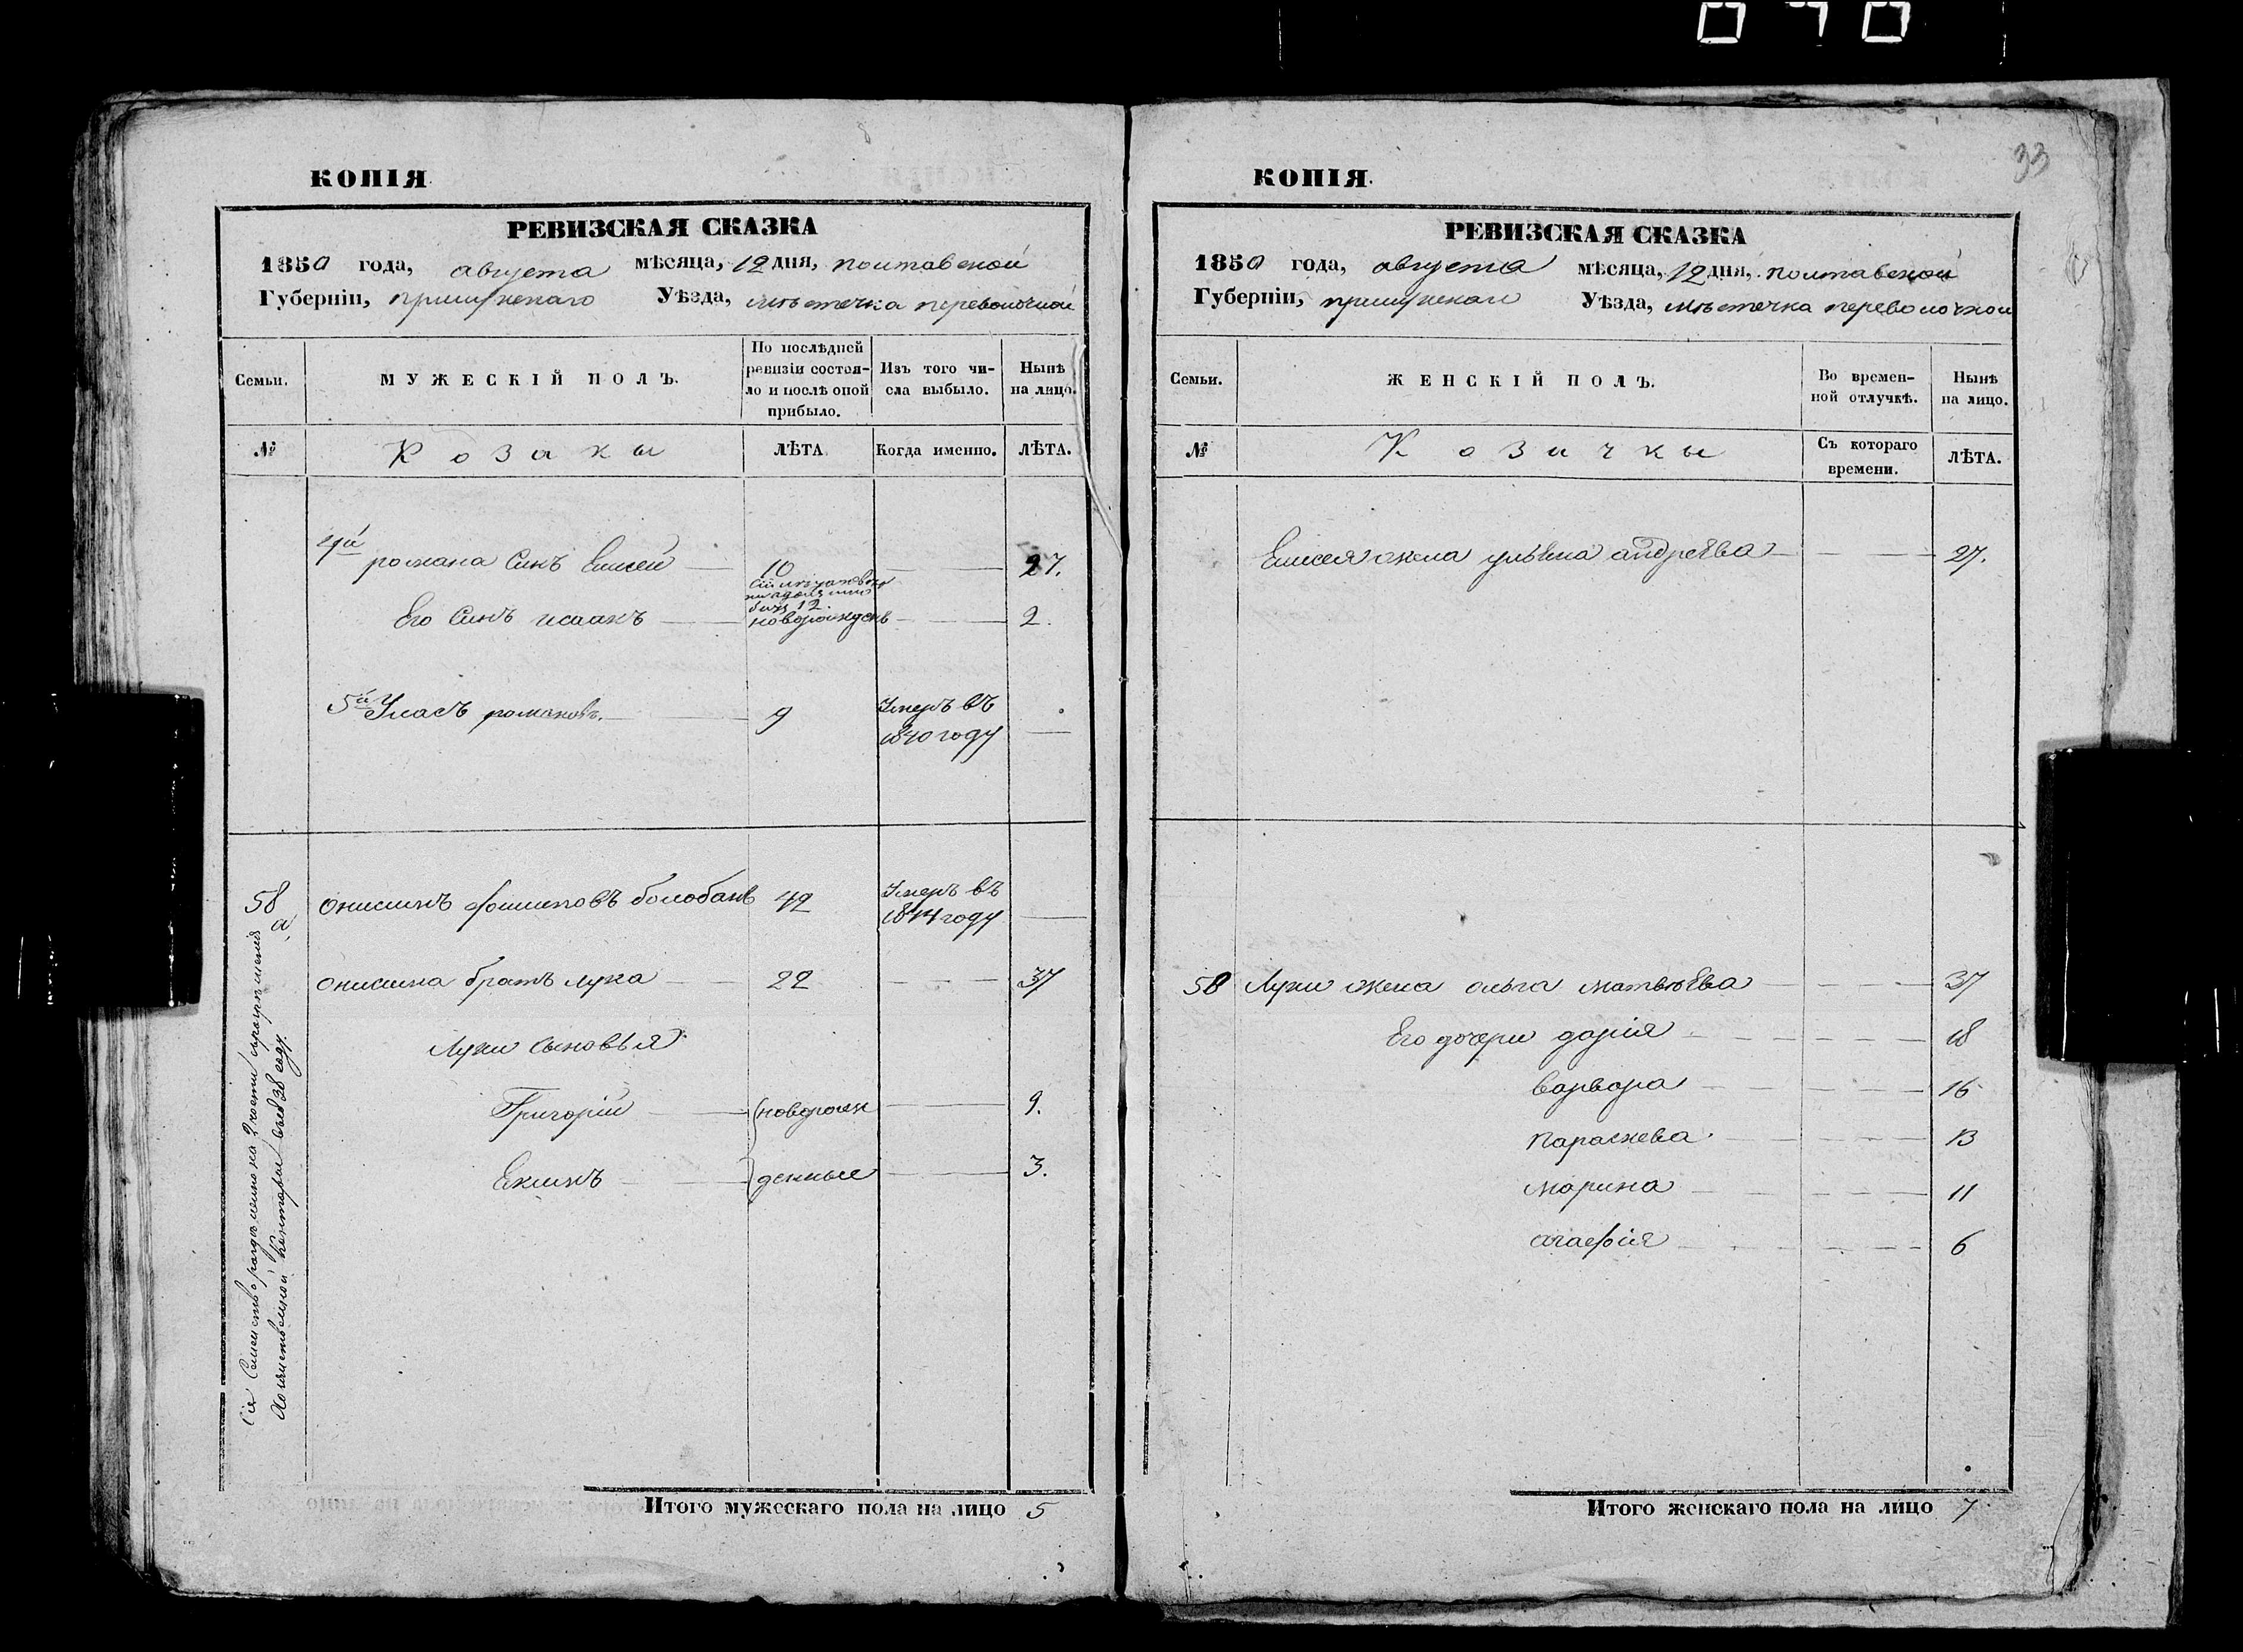 КОПІЯ
РЕВИЗСКАЯ СКАЗКА
1850 года, августа мѣсяца, 12 дня, полтавской
Губерніи, прилуцкаго Уѣзда, мѣстечка переволочной
Семьи.
МУЖЕСКІЙ ПОЛЪ.
По послѣдней ревизіи состоя-
ло и послѣ оной прибыло.
Изъ того чи-
сла выбыло.
Нынѣ
на лицо.
№
Козаки
ЛѢТА
Когда именно.
ЛѢТА.
4й
романа Синъ Елисей 10 27.
Его Синъ исаакъ новорожденъ 2.
5й Уласъ романовъ. 9 Умеръ въ
1840 году
58 онисимъ филиповъ болобанъ 42 Умеръ въ
а 1844 году
онисима братъ лука 22 37
Луки сыновья
Григорій новорож 9.
Екимъ денные 3.
Сіе Семейство раздѣлено на 2 части
Конторы 1838 году.
Итого мужескаго пола на лицо 5
33
КОПІЯ.
РЕВИЗСКАЯ СКАЗКА
1850 года, августа мѣсяца, 12 дня, полтавской
Губерніи, прилуцкаго Уѣзда, мѣстечка переволочной
Семьи.
ЖЕНСКІЙ ПОЛЪ.
Во времен-
ной отлучкѣ.
Нынѣ
на лицо.
№
Козачки
Съ котораго
времени.
ЛѢТА.
Елисея жена ульяна андреѣва 27.
58 Луки жена ольга матвѣева 37
Его дочери дарія 18
варвара 16
параскева 13
марина 11
агафія 6
Итого женскаго пола на лицо 7